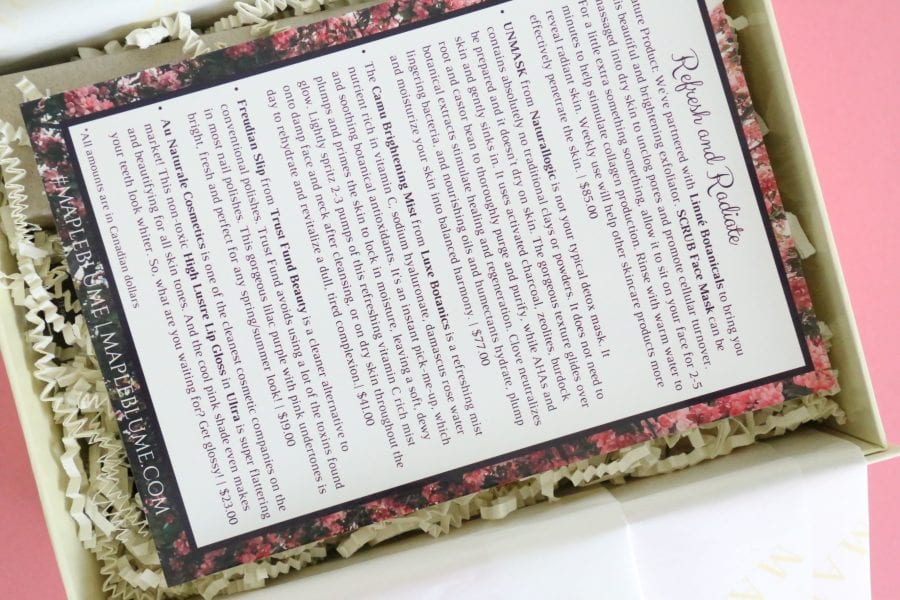 Refresh and Radiate
ture Product: We've partnered with Linné Botanicals to bring you
is beautiful and brightening exfoliator. SCRUB Face Mask can be
massaged into dry skin to unclog pores and promote cellular turnover.
For a little extra something something, allow it to sit on your face for 2-5
minutes to help stimulate collagen production. Rinse with warm water to
reveal radiant skin. Weekly use will help other skincare products more
effectively penetrate the skin. | $85.00
• UNMASK from Naturallogic is not your typical detox mask. It
contains absolutely no traditional clays or powders. It does not need to
be prepared and it doesn't dry on skin. The gorgeous texture glides over
skin and gently sinks in. It uses activated charcoal, zeolites, burdock
root and castor bean to thoroughly purge and purify, while AHAs and
botanical extracts stimulate healing and regeneration. Clove neutralizes
lingering bacteria, and nourishing oils and humectants hydrate, plump
and moisturize your skin into balanced harmony. | $77.00
• The Camu Brightening Mist from Luxe Botanics is a refreshing mist
nutrient rich in vitamin C, sodium hyaluronate, damascus rose water
and soothing botanical antioxidants. It's an instant pick-me-up, which
plumps and primes the skin to lock in moisture, leaving a soft, dewy
glow. Lightly spritz 2-3 pumps of this refreshing vitamin C rich mist
onto damp face and neck after cleansing, or on dry skin throughout the
day to rehydrate and revitalize a dull, tired complexion. | $41.00
• Freudian Slip from Trust Fund Beauty is a cleaner alternative to
conventional polishes. Trust Fund avoids using a lot of the toxins found
in most nail polishes. This gorgeous lilac purple with pink undertones is
bright, fresh and perfect for any spring/summer look! | $19.00
• Au Naturale Cosmetics is one of the cleanest cosmetic companies on the
market! This non-toxic High Lustre Lip Gloss in Ultra is super flattering
and beautifying for all skin tones. And the cool pink shade even makes
your teeth look whiter. So, what are you waiting for? Get glossy! | $23.00
*All amounts are in Canadian dollars
#MAPLEBLUME | MAPLEBLUME.COM
MA
MA